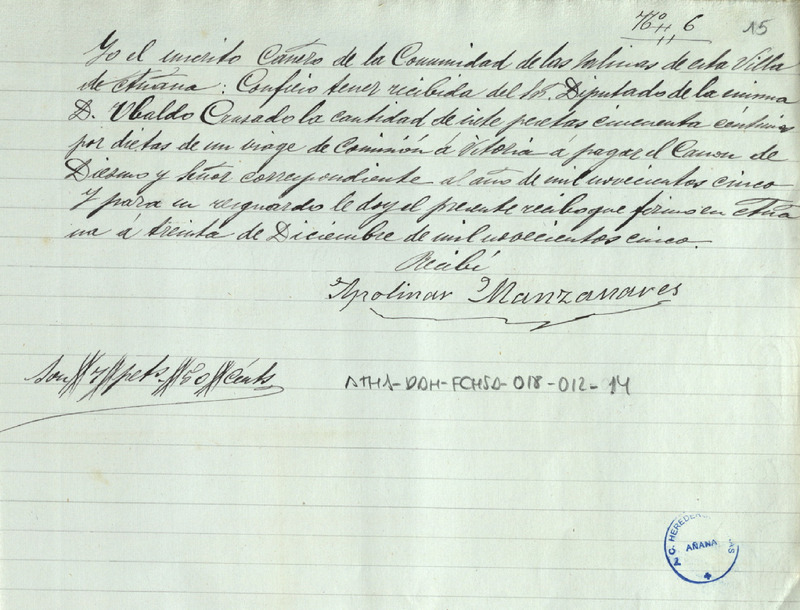 Nº 6
15
Yo el inscrito Cañero de la Comunidad de las Salinas de esta Villa
de Añana: Confieso tener recibida del Sr. Diputado de la misma
D. Ubaldo Crusado la cantidad de siete pesetas cincuenta céntimos
por dietas de un viage de Comisión á Vitoria a pagar el Canon de
Diezmo y Señor correspondiente al año de mil novecientos cinco
Y para su resguardo le doy el presente recibo que firmo en Aña
na á treinta de Diciembre de mil novecientos cinco.
Recibí
Apolinar Manzanares
Son 7 pets 50 cénts
ATHA-DAH-FCHSA-018-012-14
AÑANA